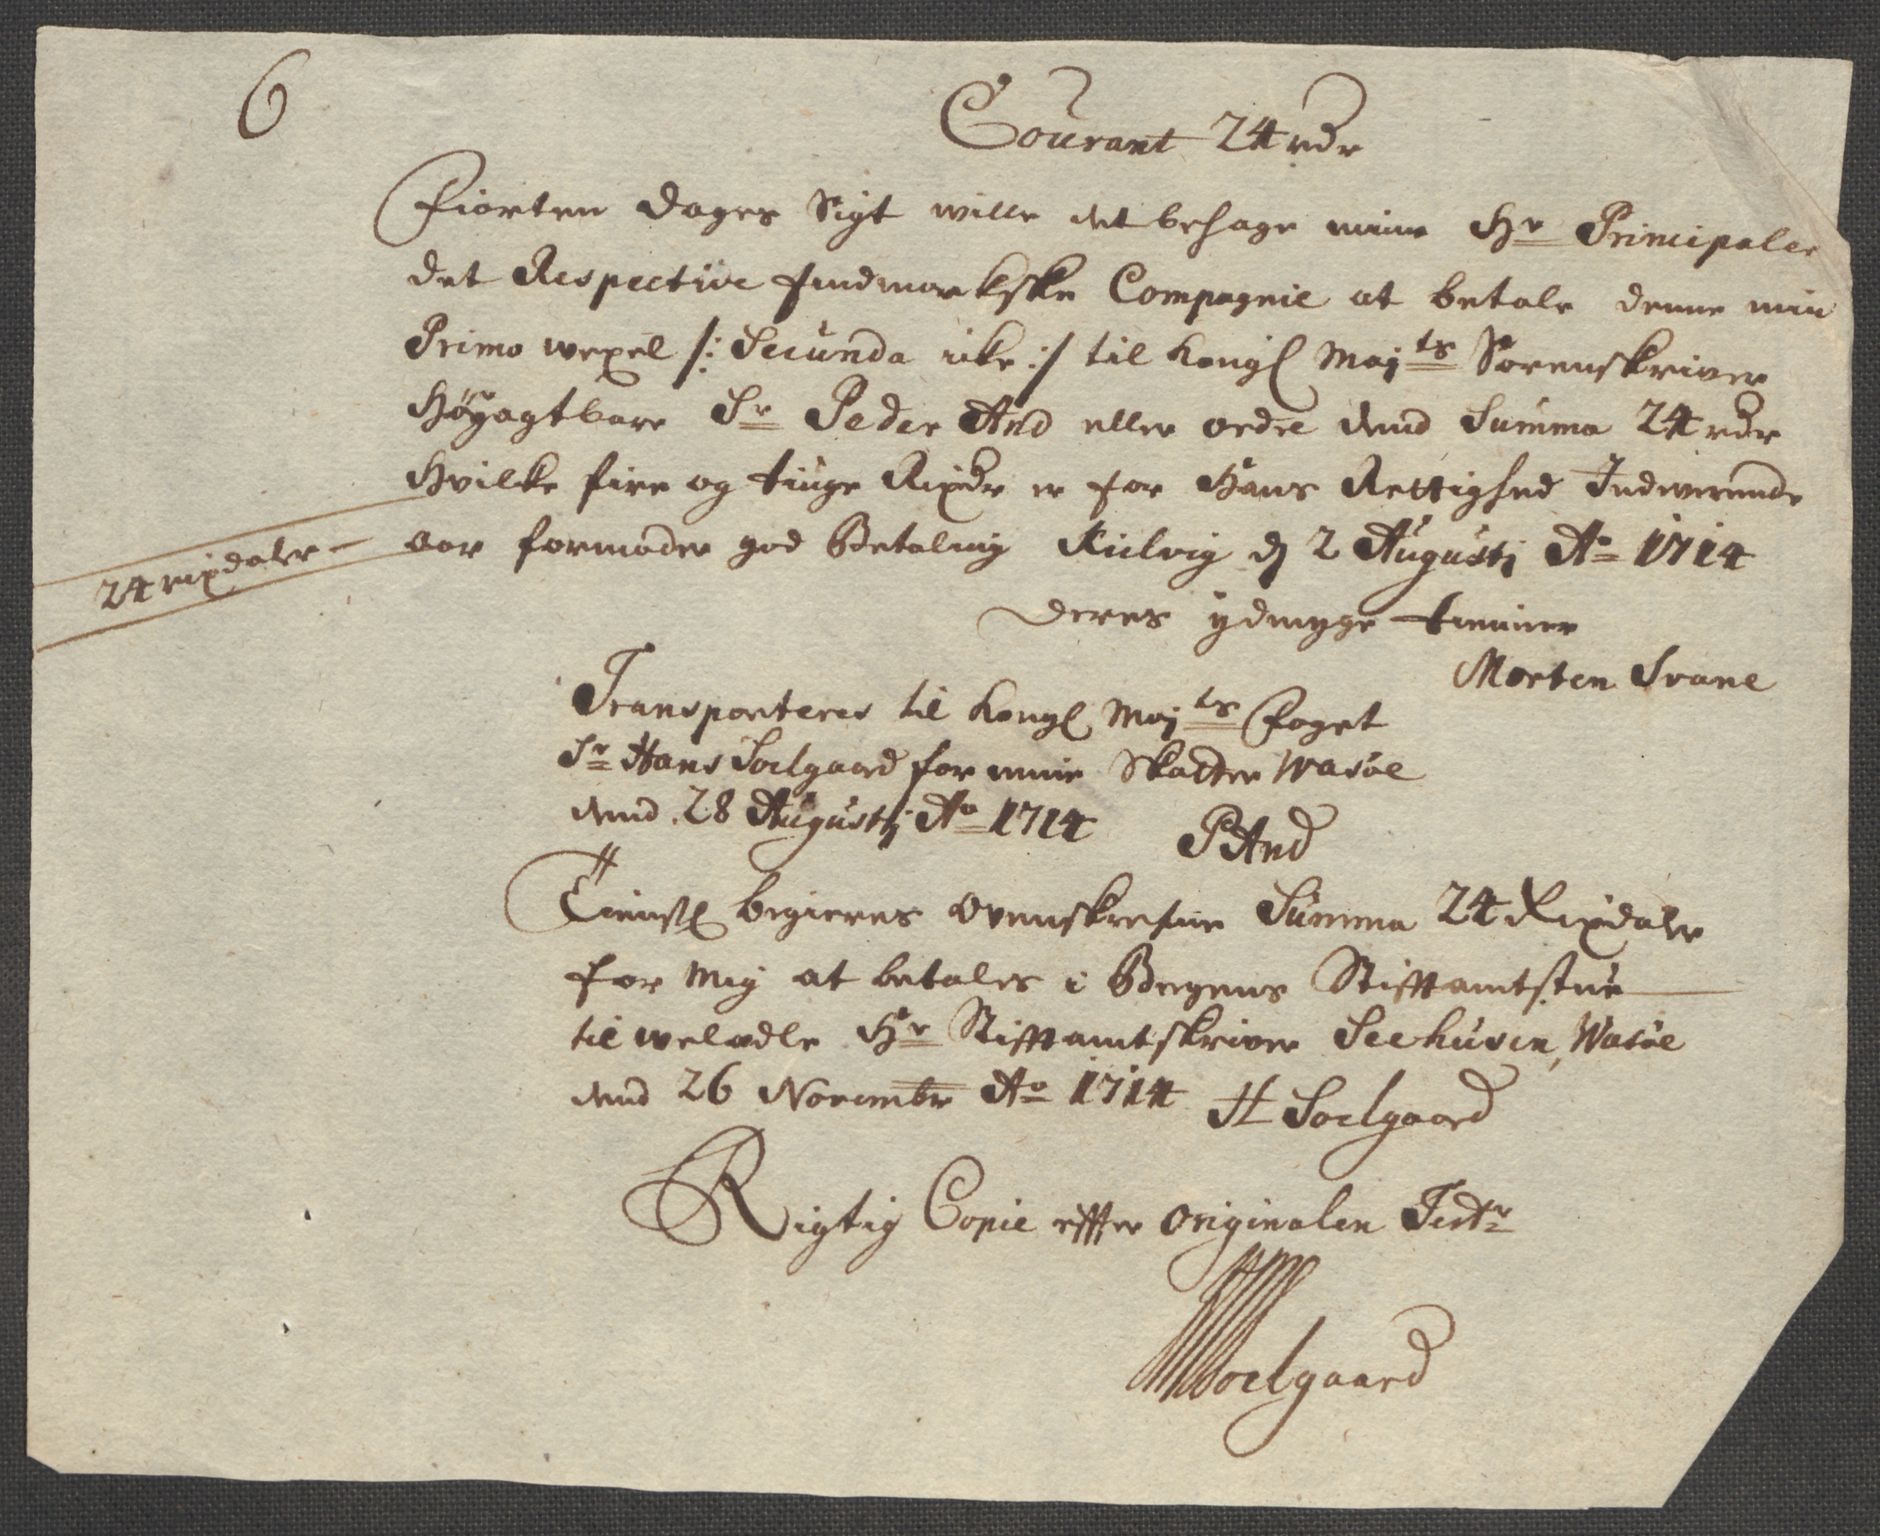 6
Courant 24 rdr
Fiorten Dages Sigt wille det behage mine Hr Principaler
det Respective findmarkske Compagnie at betale denne min
Primo wexel /: Secunda icke :/ til Kongl Majts Sorenskriver
Høyagtbare Sr Peder And eller ordre dend Summa 24 rdr
Hvilke fire og tiuge Rixdr er for Hans Rettighed Indeverende
24 rixdaler
aar formoder god Betaling Kielvig d 2 Augustj Ao 1714
Deres ydmyge tienner
Morten Svane
Transporteres til Kongl Majts Foget
Sr Hans Soelgaard for mine Skatter Wasöe
dend 28 Augustj Ao 1714 PAnd
Tienstl begieres ovenskrefne Summa 24 Rixdaler
for Mig at betales i Bergens Stifftamtstue
til welædle Hr Stifftamtskriver Seehusen, Wasöe
dend 26 Novembr Ao 1714 H Soelgaard
Rigtig Copie effter originalen Testr
HSoelgaard